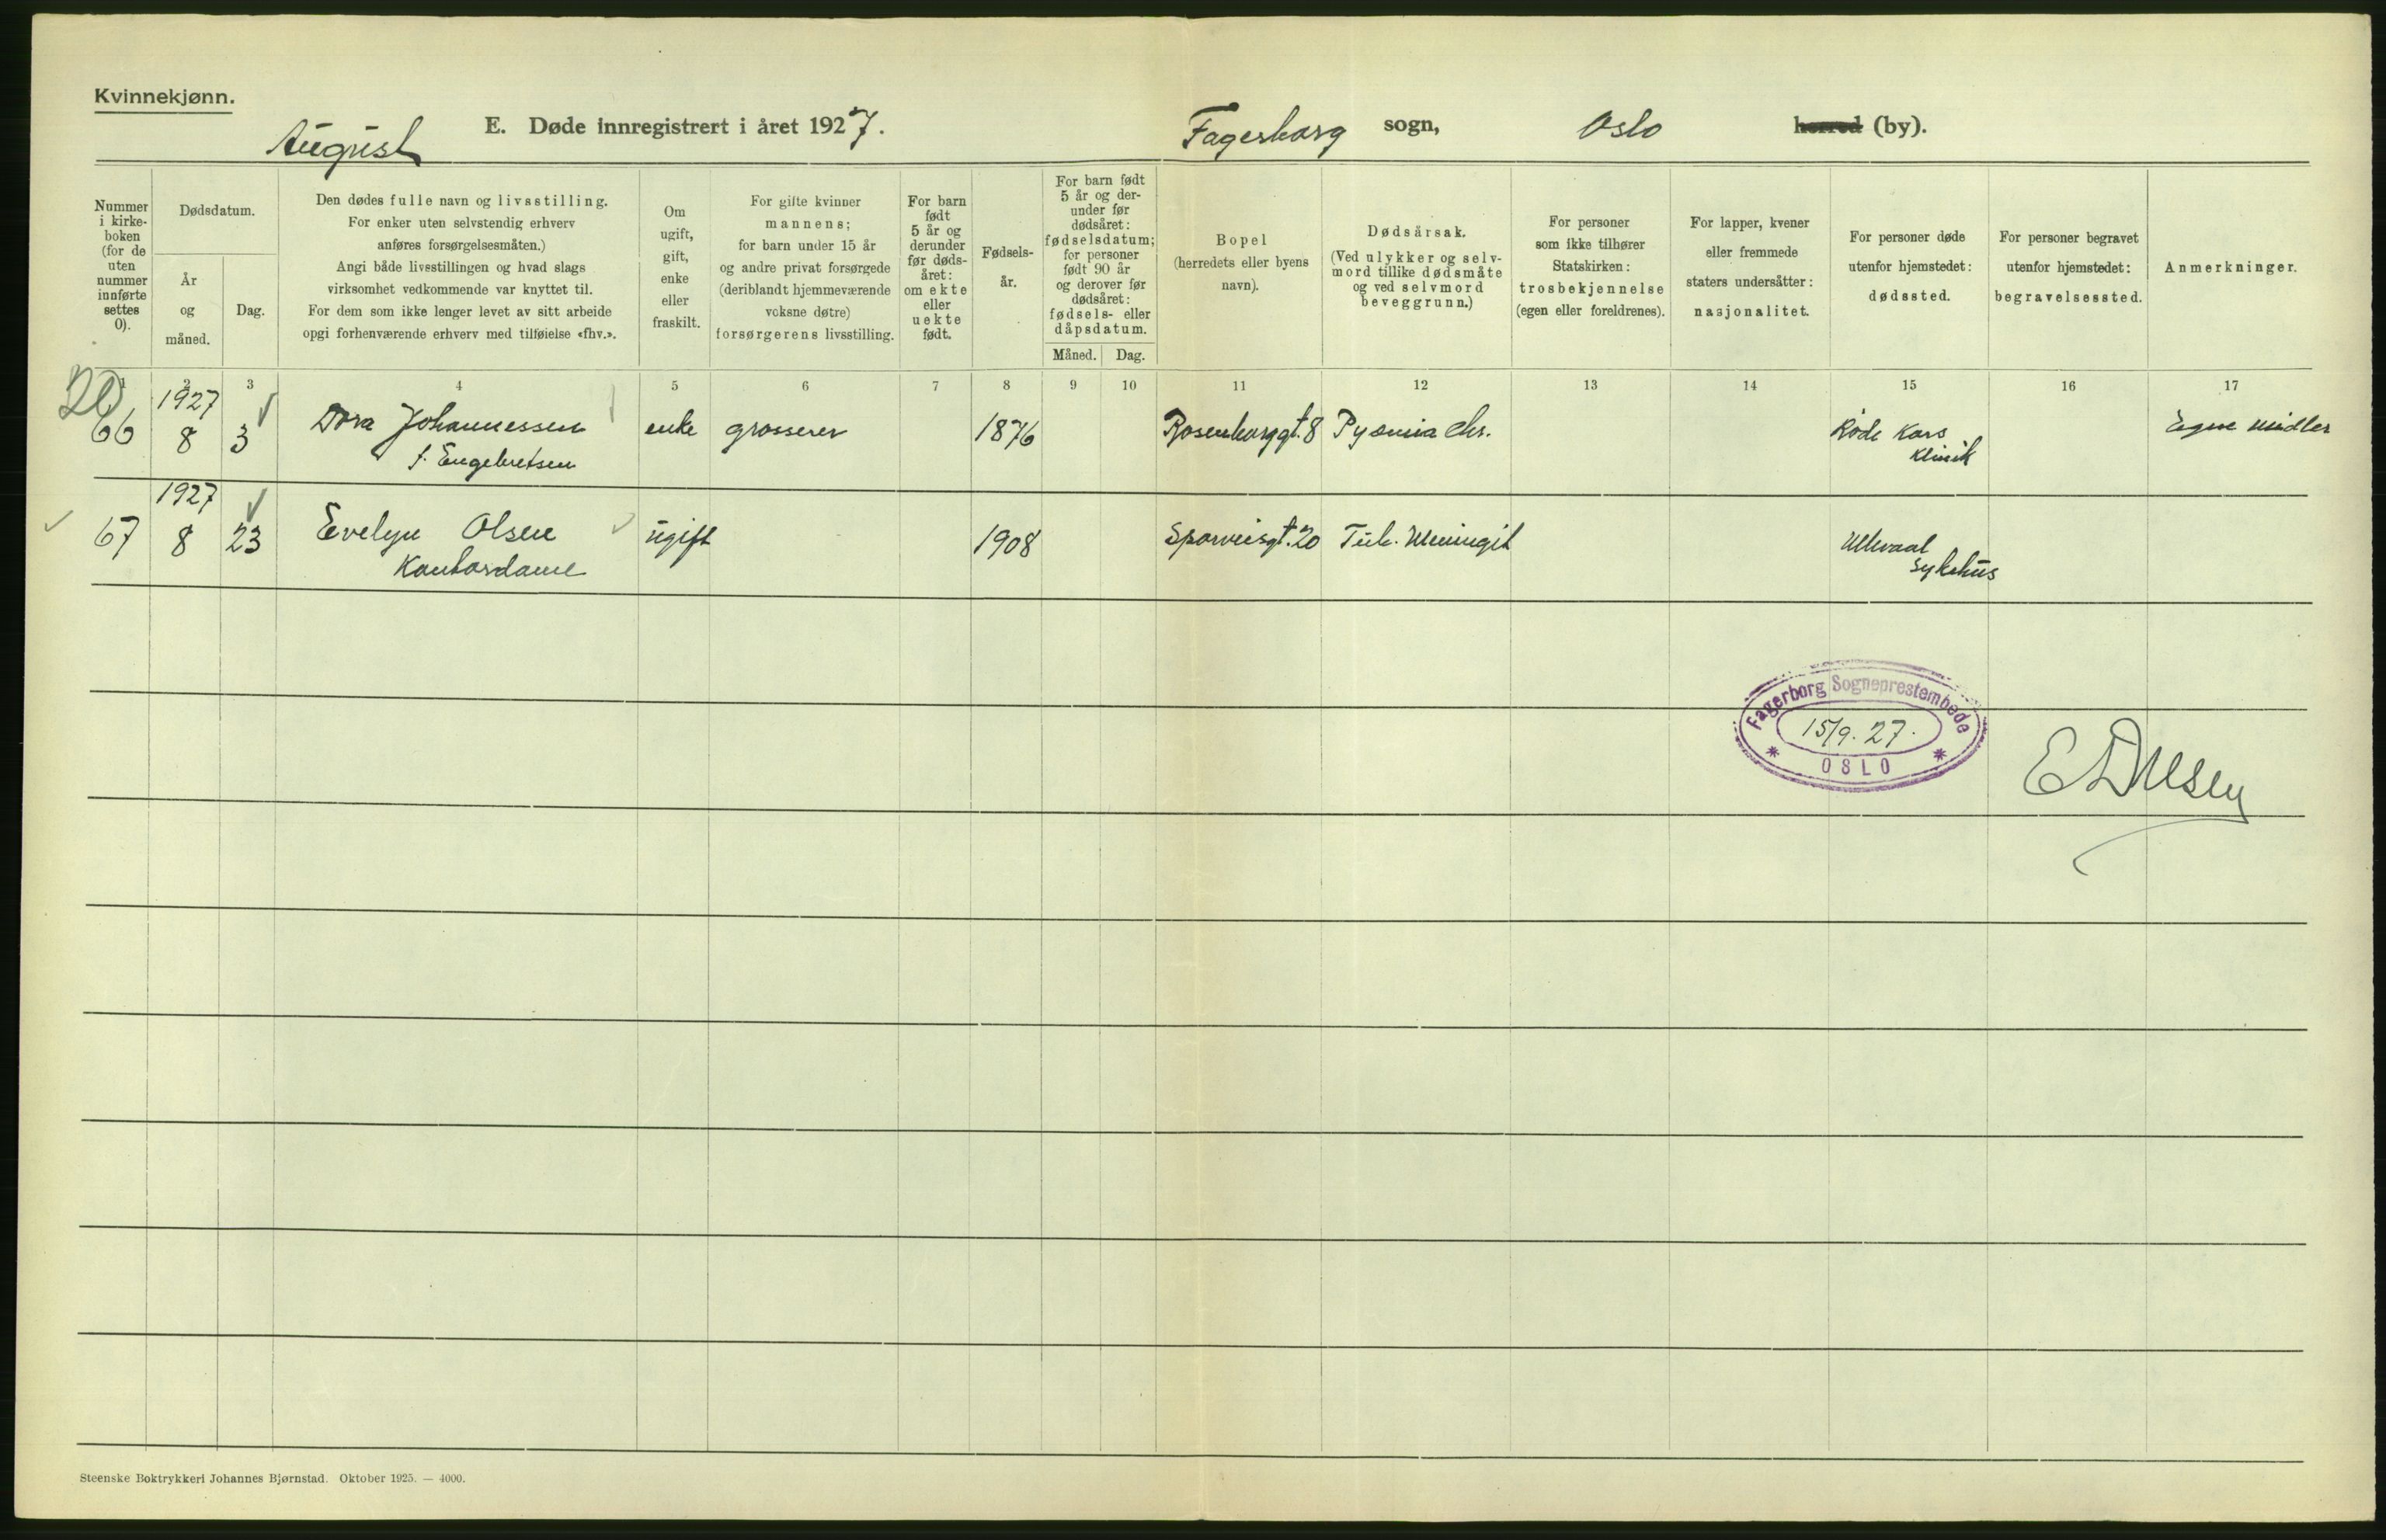 Kvinnekjønn.
August
E. Døde innregistrert i året 1927.
Fagerborg sogn,
Oslo
herred (by).
Nummer
i kirke-
boken
(for de
uten
nummer
innførte
settes
0).
Dødsdatum.
År
og
måned.
Dag.
Den dødes fulle navn og livsstilling.
For enker uten selvstendig erhverv
anføres forsørgelsesmåten.)
Angi både livsstillingen og hvad slags
virksomhet vedkommende var knyttet til.
For dem som ikke lenger levet av sitt arbeide
opgi forhenværende erhverv med tilføielse «fhv.».
Om
ugift,
gift,
enke
eller
fraskilt.
For gifte kvinner
mannens;
for barn under 15 år
og andre privat forsørgede
(deriblandt hjemmeværende
voksne døtre)
forsørgerens livsstilling.
For barn
født
5 år og
derunder
før døds-
året:
om ekte
eller
uekte
født.
Fødsels-
år.
For barn født
5 år og der-
under før
dødsåret:
fødselsdatum;
for personer
født 90 år
og derover før
dødsåret:
fødsels- eller
dåpsdatum.
Måned. Dag.
Bopel
(herredets eller byens
navn).
Dødsårsak.
(Ved ulykker og selv-
mord tillike dødsmåte
og ved selvmord
beveggrunn.)
For personer
som ikke tilhører
Statskirken:
trosbekjennelse
(egen eller foreldrenes).
For lapper, kvener
eller fremmede
staters undersåtter:
nasjonalitet.
For personer døde
utenfor hjemstedet:
dødssted.
For personer begravet
utenfor hjemstedet:
begravelsessted.
Anmerkninger.
1 2 3 4 5 6 7 8 9 10 11 12 13 14 15 16 17
20
1927
66 8 3 Dora Johannessen enke grosserer 1876 Rosenborggt. 8 Pyæmia chr. Røde Kors Egne midler
f. Engebretsen
Klinik
1927
67 8 23 Evelyn Olsen ugift 1908 Sporveisgt. 20 Tub. Meningit Ullevaal
Kontordame
sykehus
Fagerborg Sogneprestembede
15/9. 27.
* OSLO *
Steenske Boktrykkeri Johannes Bjørnstad. Oktober 1925. — 4000.